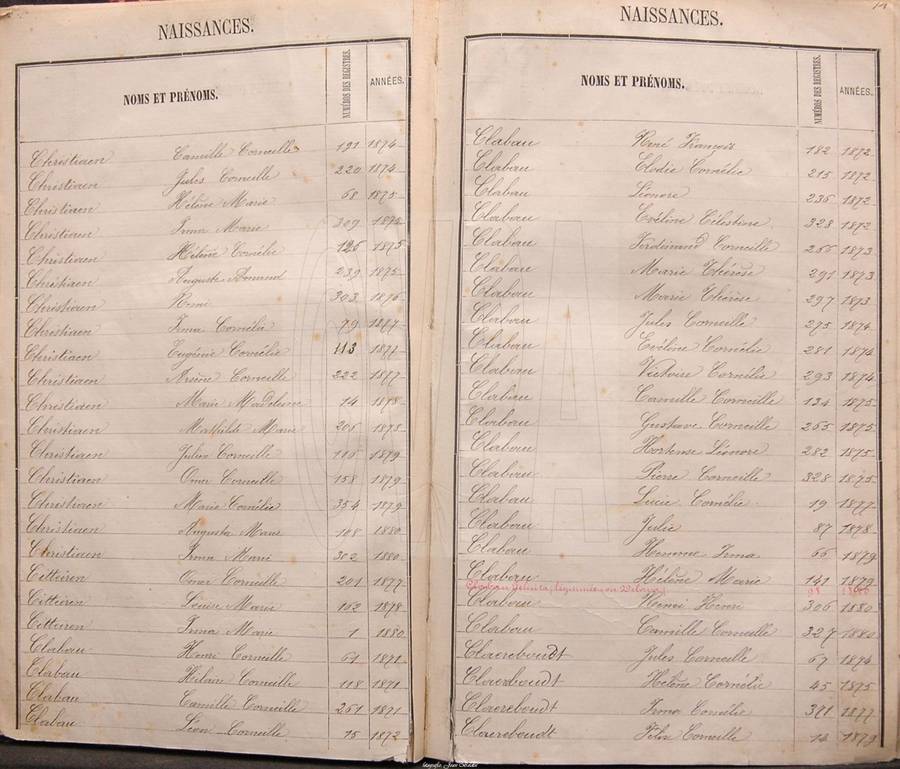 NAISSANCES.
NOMS ET PRÉNOMS. NUMÉROS DES REGISTRES. ANNÉES.
Christiaen Camille Corneille 191 1874
Christiaen Jules Corneille 220 1874
Christiaen Hélène Marie 68 1875
Christiaen Irma Marie 309 1875
Christiaen Hélène Cornélie 126 1875
Christiaen Auguste Armand 239 1875
Christiaen Remi 303 1876
Christiaen Irma Cornélie 79 1877
Christiaen Eugénie Cornélie 113 1877
Christiaen Arsène Corneille 222 1877
Christiaen Marie Madeleine 14 1878
Christiaen Mathilde Marie 206 1878
Christiaen Jules Corneille 116 1879
Christiaen Omer Corneille 158 1879
Christiaen Marie Cornélie 354 1879
Christiaen Augusta Marie 108 1880
Christiaen Irma Marie 302 1880
Citteren Omer Corneille 201 1877
Citteren Louise Marie 152 1878
Citteren Irma Marie 1 1880
Clabau Henri Corneille 61 1871
Clabau Hilaire Corneille 118 1871
Clabau Camille Corneille 261 1871
Clabau Léon Corneille 15 1872
NAISSANCES.
NOMS ET PRÉNOMS. NUMÉROS DES REGISTRES. ANNÉES.
Clabau René François 182 1872
Clabau Elodie Cornélie 215 1872
Clabau Léonore 236 1872
Clabau Eveline Célestine 328 1872
Clabau Ferdinand Corneille 266 1873
Clabau Marie Thérèse 291 1873
Clabau Marie Thérèse 297 1873
Clabau Jules Corneille 275 1874
Clabau Eveline Cornélie 281 1874
Clabau Victoire Cornélie 293 1874
Clabau Camille Corneille 134 1875
Clabau Gustave Corneille 265 1875
Clabau Hortense Léonore 282 1875
Clabau Pierre Corneille 328 1875
Clabau Lucie Cornélie 19 1877
Clabau Julie 87 1878
Clabau Irma 66 1879
Clabau Hélène Marie 141 1879
Clabau 98 1880
Clabau Henri 306 1880
Clabau Camille Corneille 327 1880
Claereboudt Jules Corneille 67 1874
Claereboudt Hélène Cornélie 45 1875
Claereboudt Irma Cornélie 391 1877
Claereboudt Félix Corneille 14 1879